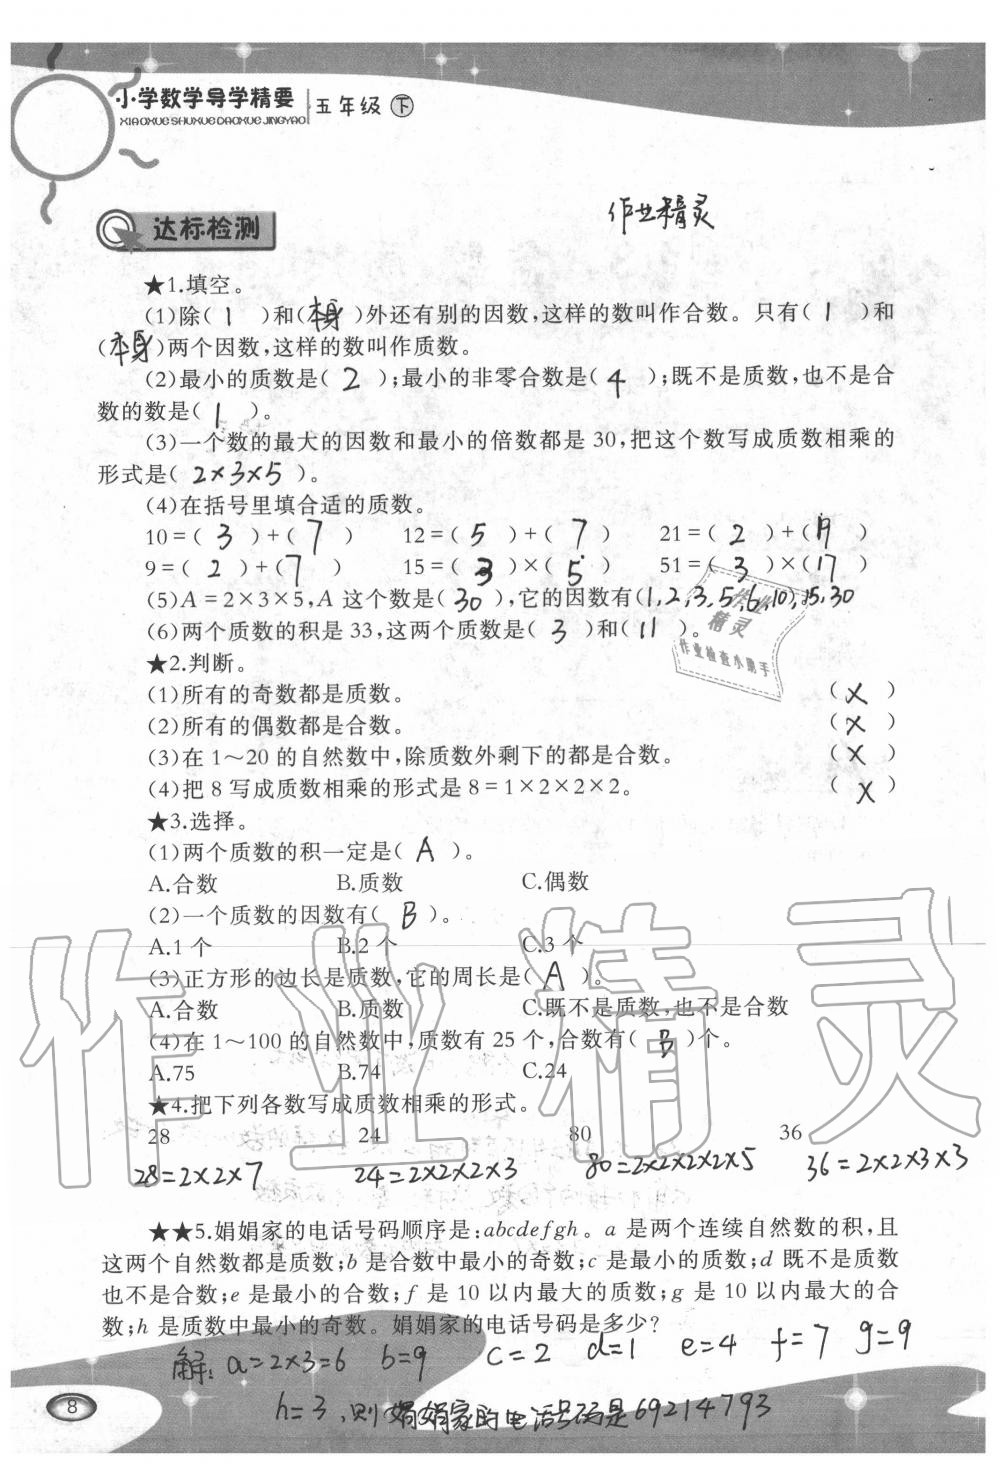 小学数学导学精要 五年级 下
XIAOXUESHUXUEDAOXUEJINGYAO
作业精灵
达标检测
★1.填空。
(1)除( 1 )和(本身)外还有别的因数,这样的数叫作合数。只有( 1 )和
(本身)两个因数,这样的数叫作质数。
(2)最小的质数是( 2 );最小的非零合数是( 4 );既不是质数,也不是合
数的数是( 1 )。
(3)一个数的最大的因数和最小的倍数都是 30,把这个数写成质数相乘的
形式是( 2×3×5 )。
(4)在括号里填合适的质数。
10=( 3 )+( 7 ) 12=( 5 )+( 7 ) 21=( 2 )+( 19 )
9=( 2 )+( 7 ) 15=( 3 )×( 5 ) 51=( 3 )×( 17 )
(5)A=2×3×5,A 这个数是( 30 ),它的因数有(1,2,3,5,6,10,15,30
(6)两个质数的积是 33,这两个质数是( 3 )和( 11 )。
作业
精灵
作业检查小助手
★2.判断。
(1)所有的奇数都是质数。 ( × )
(2)所有的偶数都是合数。 ( × )
(3)在 1～20 的自然数中,除质数外剩下的都是合数。 ( × )
(4)把 8 写成质数相乘的形式是 8=1×2×2×2。 ( × )
★3.选择。
(1)两个质数的积一定是( A )。
A.合数 B.质数 C.偶数
(2)一个质数的因数有( B )。
A.1 个 B.2 个 C.3 个
(3)正方形的边长是质数,它的周长是( A )。
A.合数 B.质数 C.既不是质数,也不是合数
(4)在 1～100 的自然数中,质数有 25 个,合数有( B )个。
A.75 B.74 C.24
作业精灵
★4.把下列各数写成质数相乘的形式。
28 24 80 36
28=2×2×7 24=2×2×2×3 80=2×2×2×2×5 36=2×2×3×3
★★5.娟娟家的电话号码顺序是:abcdefgh。a 是两个连续自然数的积,且
这两个自然数都是质数;b 是合数中最小的奇数;c 是最小的质数;d 既不是质数
也不是合数;e 是最小的合数;f 是 10 以内最大的质数;g 是 10 以内最大的合
数;h 是质数中最小的奇数。娟娟家的电话号码是多少?
解:a=2×3=6 b=9 c=2 d=1 e=4 f=7 g=9
h=3,则娟娟家的电话号码是69214793
8